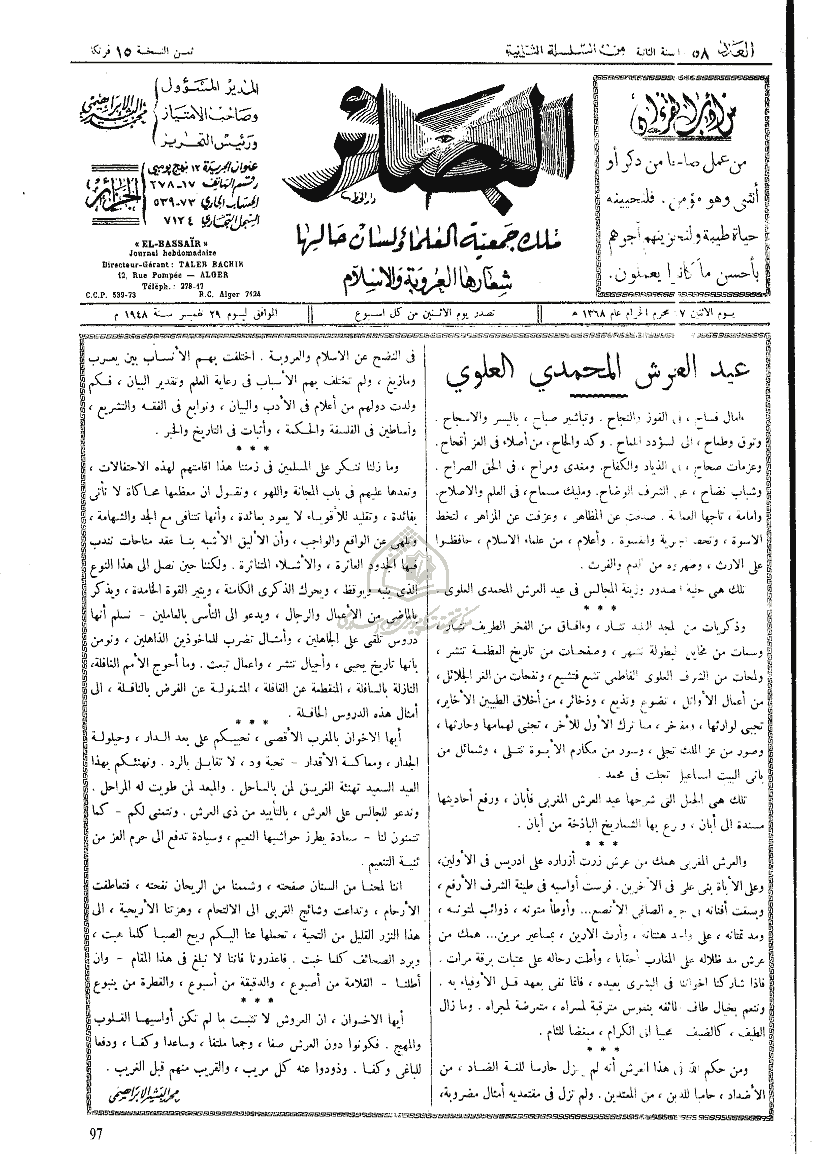 العدد ٥٨ السنة الثانية من السلسلة الثانية
ثمن النسخة ١٥ فرنكا
من عمل صالحا من ذكر أو
أنثى وهو مؤمن. فلنحيينه
حياة طيبة ولنجزينهم أجرهم
بأحسن ما كانوا يعملون.
البصائر
لسان حالها
شعارها العروبة والاسلام
المدير المسؤول
وصاحب الامتياز
ورئيس التحرير
محمد البشير الإبراهيمي
عنوان الجريدة ١٢ نهج بومبي
رقم الهاتف ١٧-٢٧٨
الحساب الجاري ٧٣-٥٣٩
السجل التجاري ٧١٢٤
الجزائر
« EL-BASSAÏR »
Journal hebdomadaire
Directeur-Gérant : TALEB BACHIR
12, Rue Pompée — ALGER
Téléph. : 278-17
C.C.P. 539-73 R.C. Alger 7124
يوم الاثنين ٧ محرم الحرام عام ١٣٦٨ ه
تصدر يوم الاثنين من كل اسبوع
الموافق ليوم ٢٩ نفمبر سنة ١٩٤٨ م
عيد العرش المحمدي العلوي
آمال فساح ، فى الفوز والنجاح . وتباشير صباح ، باليسر والاسجاح .
وتوق وطماح ، الى السؤدد اللماح . وكد والحاح ، من أصلاء فى العز أقحاح .
وعزمات صحاح ، فى الذياد والكفاح. ومغدى ومراح ، فى الحق الصراح .
وشباب نضاح ، عن الشرف الوضاح. ومليك مسماح، فى العلم والاصلاح.
وامامة ، تاجها العمامة . صدفت عن المظاهر ، وعزفت عن المزاهر ،
الاسوة ، وأعلام ، من علماء الاسلام ، حافظوا
على الارث ،
تلك هى حلية الصدور وزينة المجالس فى عيد العرش المحمدى العلوى
* * *
وذكريات من المجد التليد تثار ، وءافاق من الفخر الطريف تنار ،
وسمات من مخايل البطولة تشهر ، وصفحات من تاريخ العظمة تنشر ،
ولمحات من الشرف العلوى الفاطمى تشع فتشيع ، ونفحات من الغر الجلائل،
من أعمال الأوائل ، تضوع وتذيع ، وذخائر، من أخلاق الطيبين الأخاير،
تجبى لوارثها ، ومفاخر ، مما ترك الأول للآخر ، تجنى لهمامها وحارثها ،
وصور من عز الملك تجلى ، وسور من مكارم الأبوة تتلى ، وشمائل من
بانى البيت اسماعيل تجلت فى محمد .
تلك هى الجمل التى شرحها عيد العرش المغربى فأبان ، ورفع أحاديثها
مسندة الى أبان ، بها الشماريخ الباذخة من أبان .
* * *
والعرش المغربى همك من عرش زرت أزراره على ادريس فى الأولين،
وعلى الأباة بنى على فى الآخرين. فرست أواسيه فى طينة الشرف الأرفع ،
وبسقت أفنانه فى الصافى الأنصع... وأوطأ متونه ، ذوائب لمتونه ،
ومد تهتانه ، على هنتاته ، وأرث الارين ، بمساعير مرين... همك من
عرش مد ظلاله على المغارب أحقابا ، وأطت رحاله على عتبات برقة مرات .
فاذا شاركنا اخواننا فى البشرى بعيده ، فانما نفى بعهد قبل الأوفياء به .
وننعم بخيال طاف طائفه بنفوس مترقبة لمسراه ، متعرضة لمجراه . وما زال
الطيف ، كالضيف محببا الى الكرام ، مبغضا للئام .
* * *
ومن حكم الله فى هذا العرش أنه لم يزل حارسا للغة الضاد ، من
الأضداد ، حاميا للدين ، من المعتدين. ولم تزل فى مقتعديه أمثال مضروبة،
فى النضح عن الاسلام والعروبة . اختلفت بهم الأنساب بين يعرب
ومازيغ ، ولم تختلف بهم الأسباب فى رعاية العلم وتقدير البيان ، فكم
ولدت دولهم من أعلام فى الأدب والبيان ، ونوابغ فى الفقه والتشريع ،
وأساطين فى الفلسفة والحكمة ، وأثبات فى التاريخ والخبر .
* * *
وما زلنا ننكر على المسلمين فى زمننا هذا اقامتهم لهذه الاحتفالات ،
ونعدها عليهم فى باب المجانة واللهو ، ونقول ان معظمها محاكاة لا تأتى
بفائدة ، وتقليد للأقوياء لا يعود بعائدة ، وأنها تتنافى مع الجد والشهامة ،
وتلهى عن الواقع والواجب ، وأن الأليق الأشبه بنا عقد مناحات تندب
فيها الجدود العاثرة ، والأشلاء المتناثرة . ولكننا حين نصل الى هذا النوع
الذى ينبه ويوقظ ، ويحرك الذكرى الكامنة ، ويثير القوة الخامدة ، ويذكر
بالماضى من الأعمال والرجال ، ويدعو الى التأسى بالعاملين - نسلم أنها
دروس تلقى على الجاهلين ، وأمثال تضرب للمأخوذين الذاهلين ، ونومن
بأنها تاريخ يحيى ، وأجيال تنشر ، واعمال تبعث . وما أحوج الأمم الغافلة،
النازلة بالسافلة ، المنقطعة عن القافلة ، المشغولة عن الفرض بالنافلة ، الى
أمثال هذه الدروس الحافلة .
* * *
أيها الاخوان بالمغرب الأقصى ، نحييكم على بعد الدار ، وحيلولة
الجدار ، ومعاكسة الأقدار - تحية ود ، لا تقابل بالرد . ونهنئكم بهذا
العيد السعيد تهنئة الغريق لمن بالساحل . والمبعد لمن طويت له المراحل .
وندعو للجالس على العرش ، بالتأييد من ذى العرش ، ونتمنى لكم - كما
تتمنون لنا - سعادة يطرز حواشيها النعيم ، وسيادة تدفع الى حرم العز من
ثنية التنعيم .
اننا لمحنا من البستان صفحته ، وشممنا من الريحان نفحته ، فتعاطفت
الأرحام ، وتداعت وشائج القربى الى الالتحام ، وهزتنا الأريحية ، الى
هذا النزر القليل من التحية ، تحملها عنا اليكم ريح الصبا كلما هبت ،
وبرد الصحائف كلما خبت . فاعذرونا فاننا لا نبلغ فى هذا المقام - وان
أطلنا - القلامة من أصبوع ، والدقيقة من أسبوع ، والقطرة من ينبوع
* * *
أيها الاخوان ، ان العروش لا تثبت ما لم تكن أواسيها القلوب
والمهج . فكونوا دون العرش صفا ، وجمعا ملتفا ، وساعدا وكفا ، ودفعا
للباغى وكفا . وذودوا عنه كل مريب ، والقريب منهم قبل الغريب .
محمد البشير الإبراهيمي
97